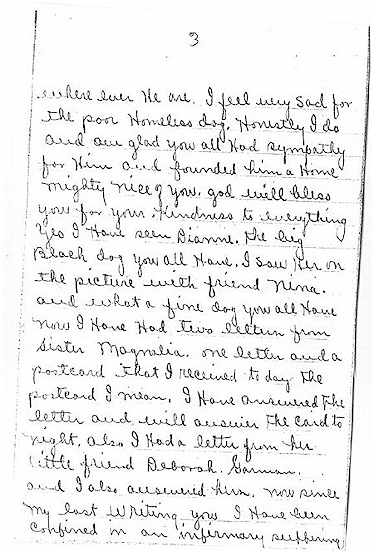 3
where ever He are. I feel very sad for
the poor Homeless dog. Honestly I do
and am glad you all Had sympathy
for Him and founded him a Home
mighty nice of you. god will bless
you for your Kindness to everything
Yes I Have seen Dianne. the big
Black dog you all Have. I saw Her on
the picture with friend Nina.
and what a fine dog you all Have
now I Have Had two letters from
Sister Magnolia. one letter and a
postcard that I received to day the
postcard I mean. I Have answered the
letter and will answer the card to
night. also I Had a letter from her
little friend Deborah. Garman.
and I also answered hers. now since
my last writing you I Have been
confined in an infirmary suffering